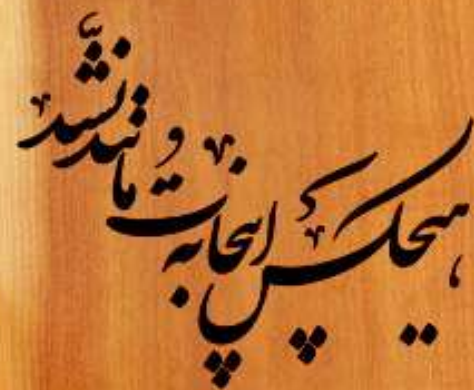 هیچکس اینجا به تو مانند نشد